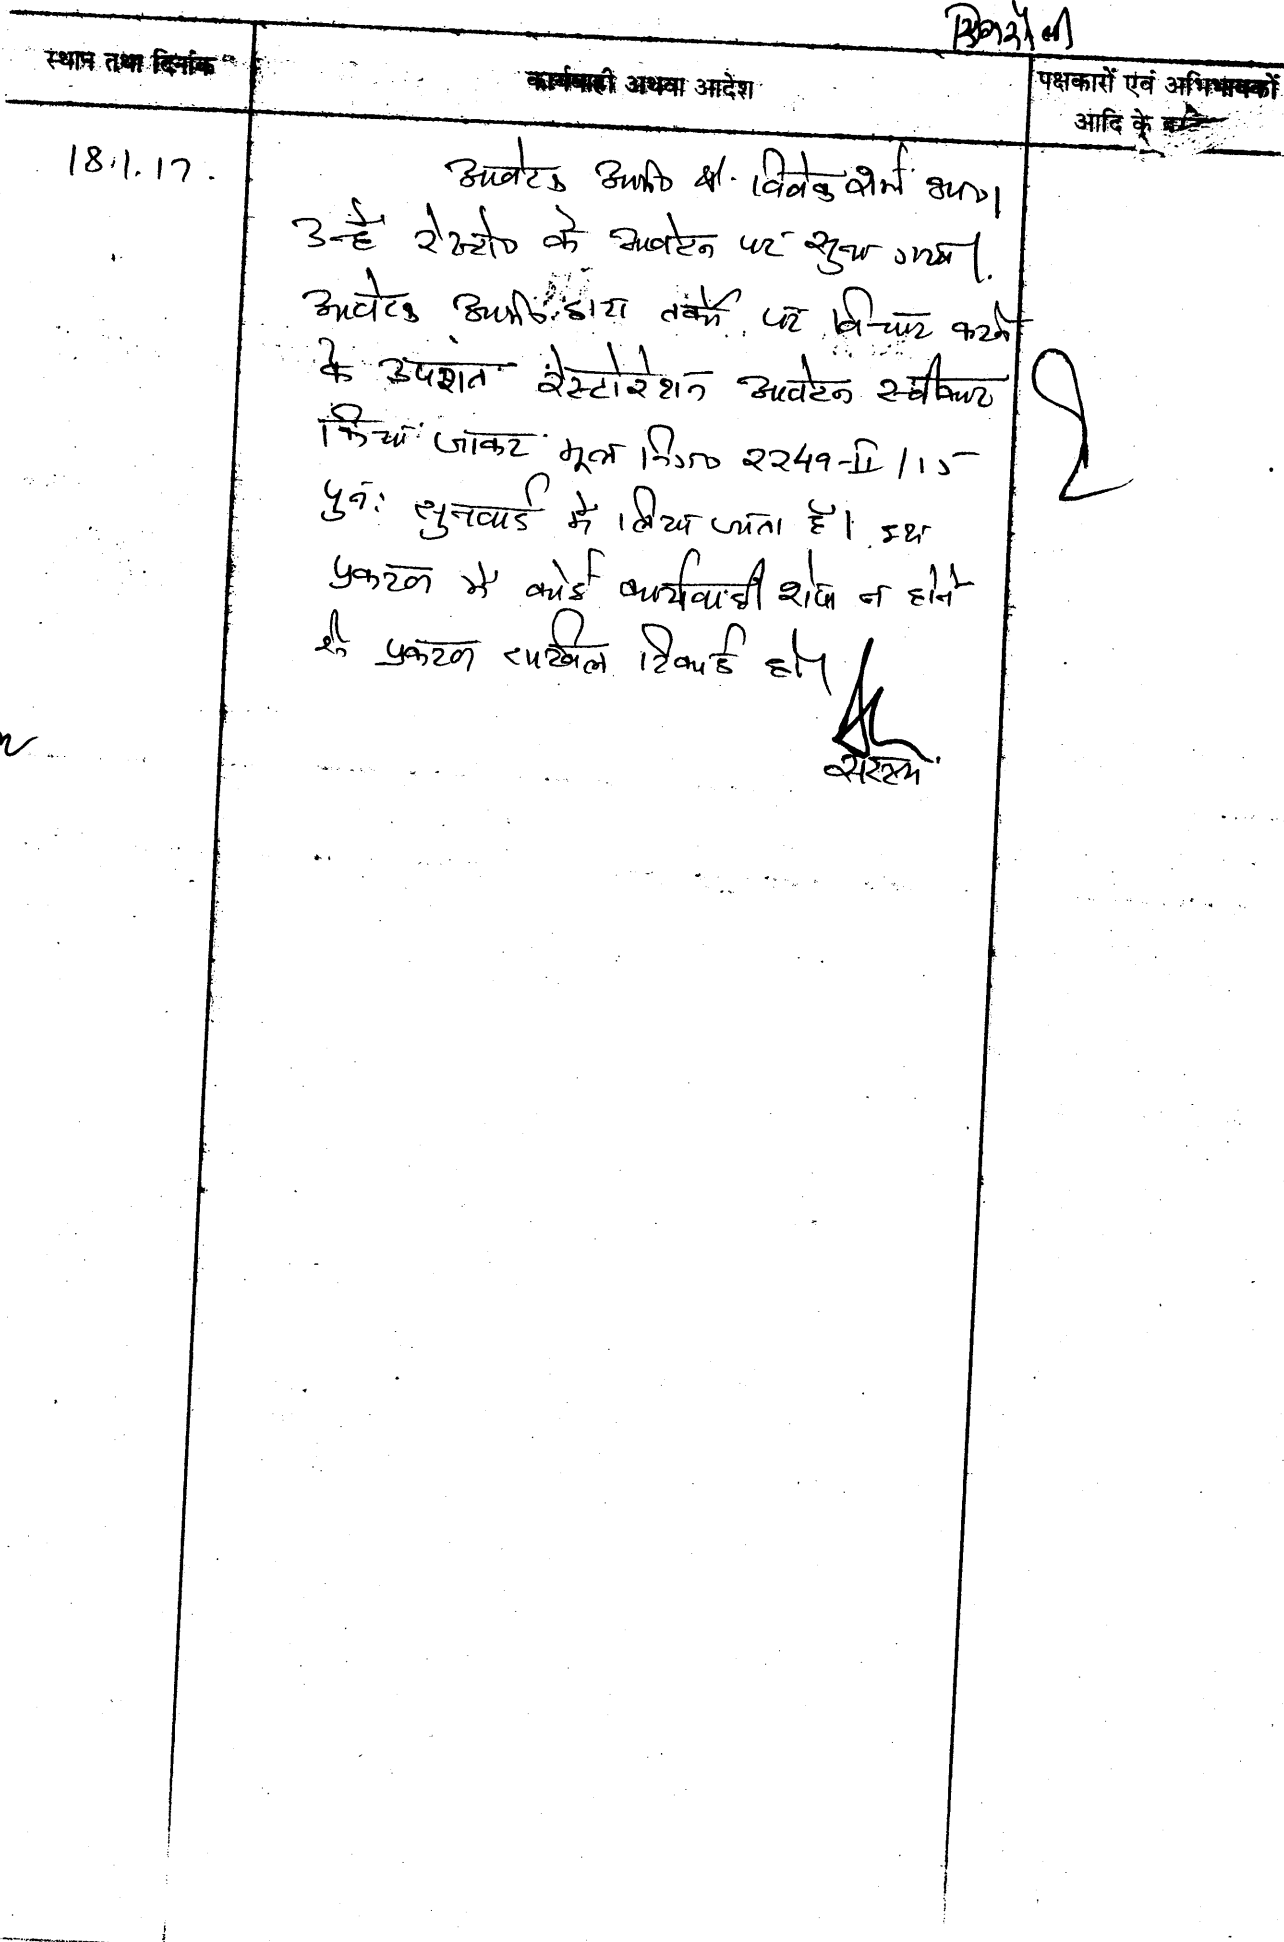 सिंगरौली
स्थान तथा दिनांक
कार्यवाही अथवा आदेश
पक्षकारों एवं अभिभाषकों
आदि के
18.1.17.
आवेदक अभि० श्री विवेक शर्मा उप०।
उन्हें रेस्टो० के आवेदन पर सुना गया।
आवेदक अभि० द्वारा तर्कों पर विचार करने
के उपरांत रेस्टोरेशन आवेदन स्वीकार
किया जाकर मूल निग० 2249-II/15
पुनः सुनवाई में लिया जाता है। इस
प्रकरण में कोई कार्यवाही शेष न होने
से प्रकरण दाखिल रिकार्ड हो।
सदस्य